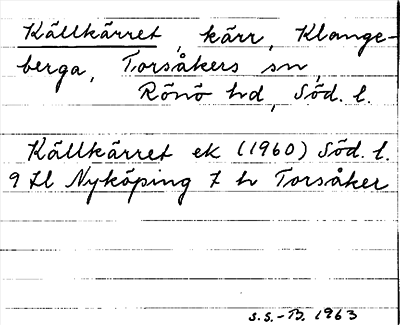 Källkärret, kärr, Klange-
berga, Torsåkers sn,
Rönö hd, Söd. l.
Källkärret ek (1960) Söd. l.
9 Hl Nyköping 7 h Torsåker
S.S.-B. 1963